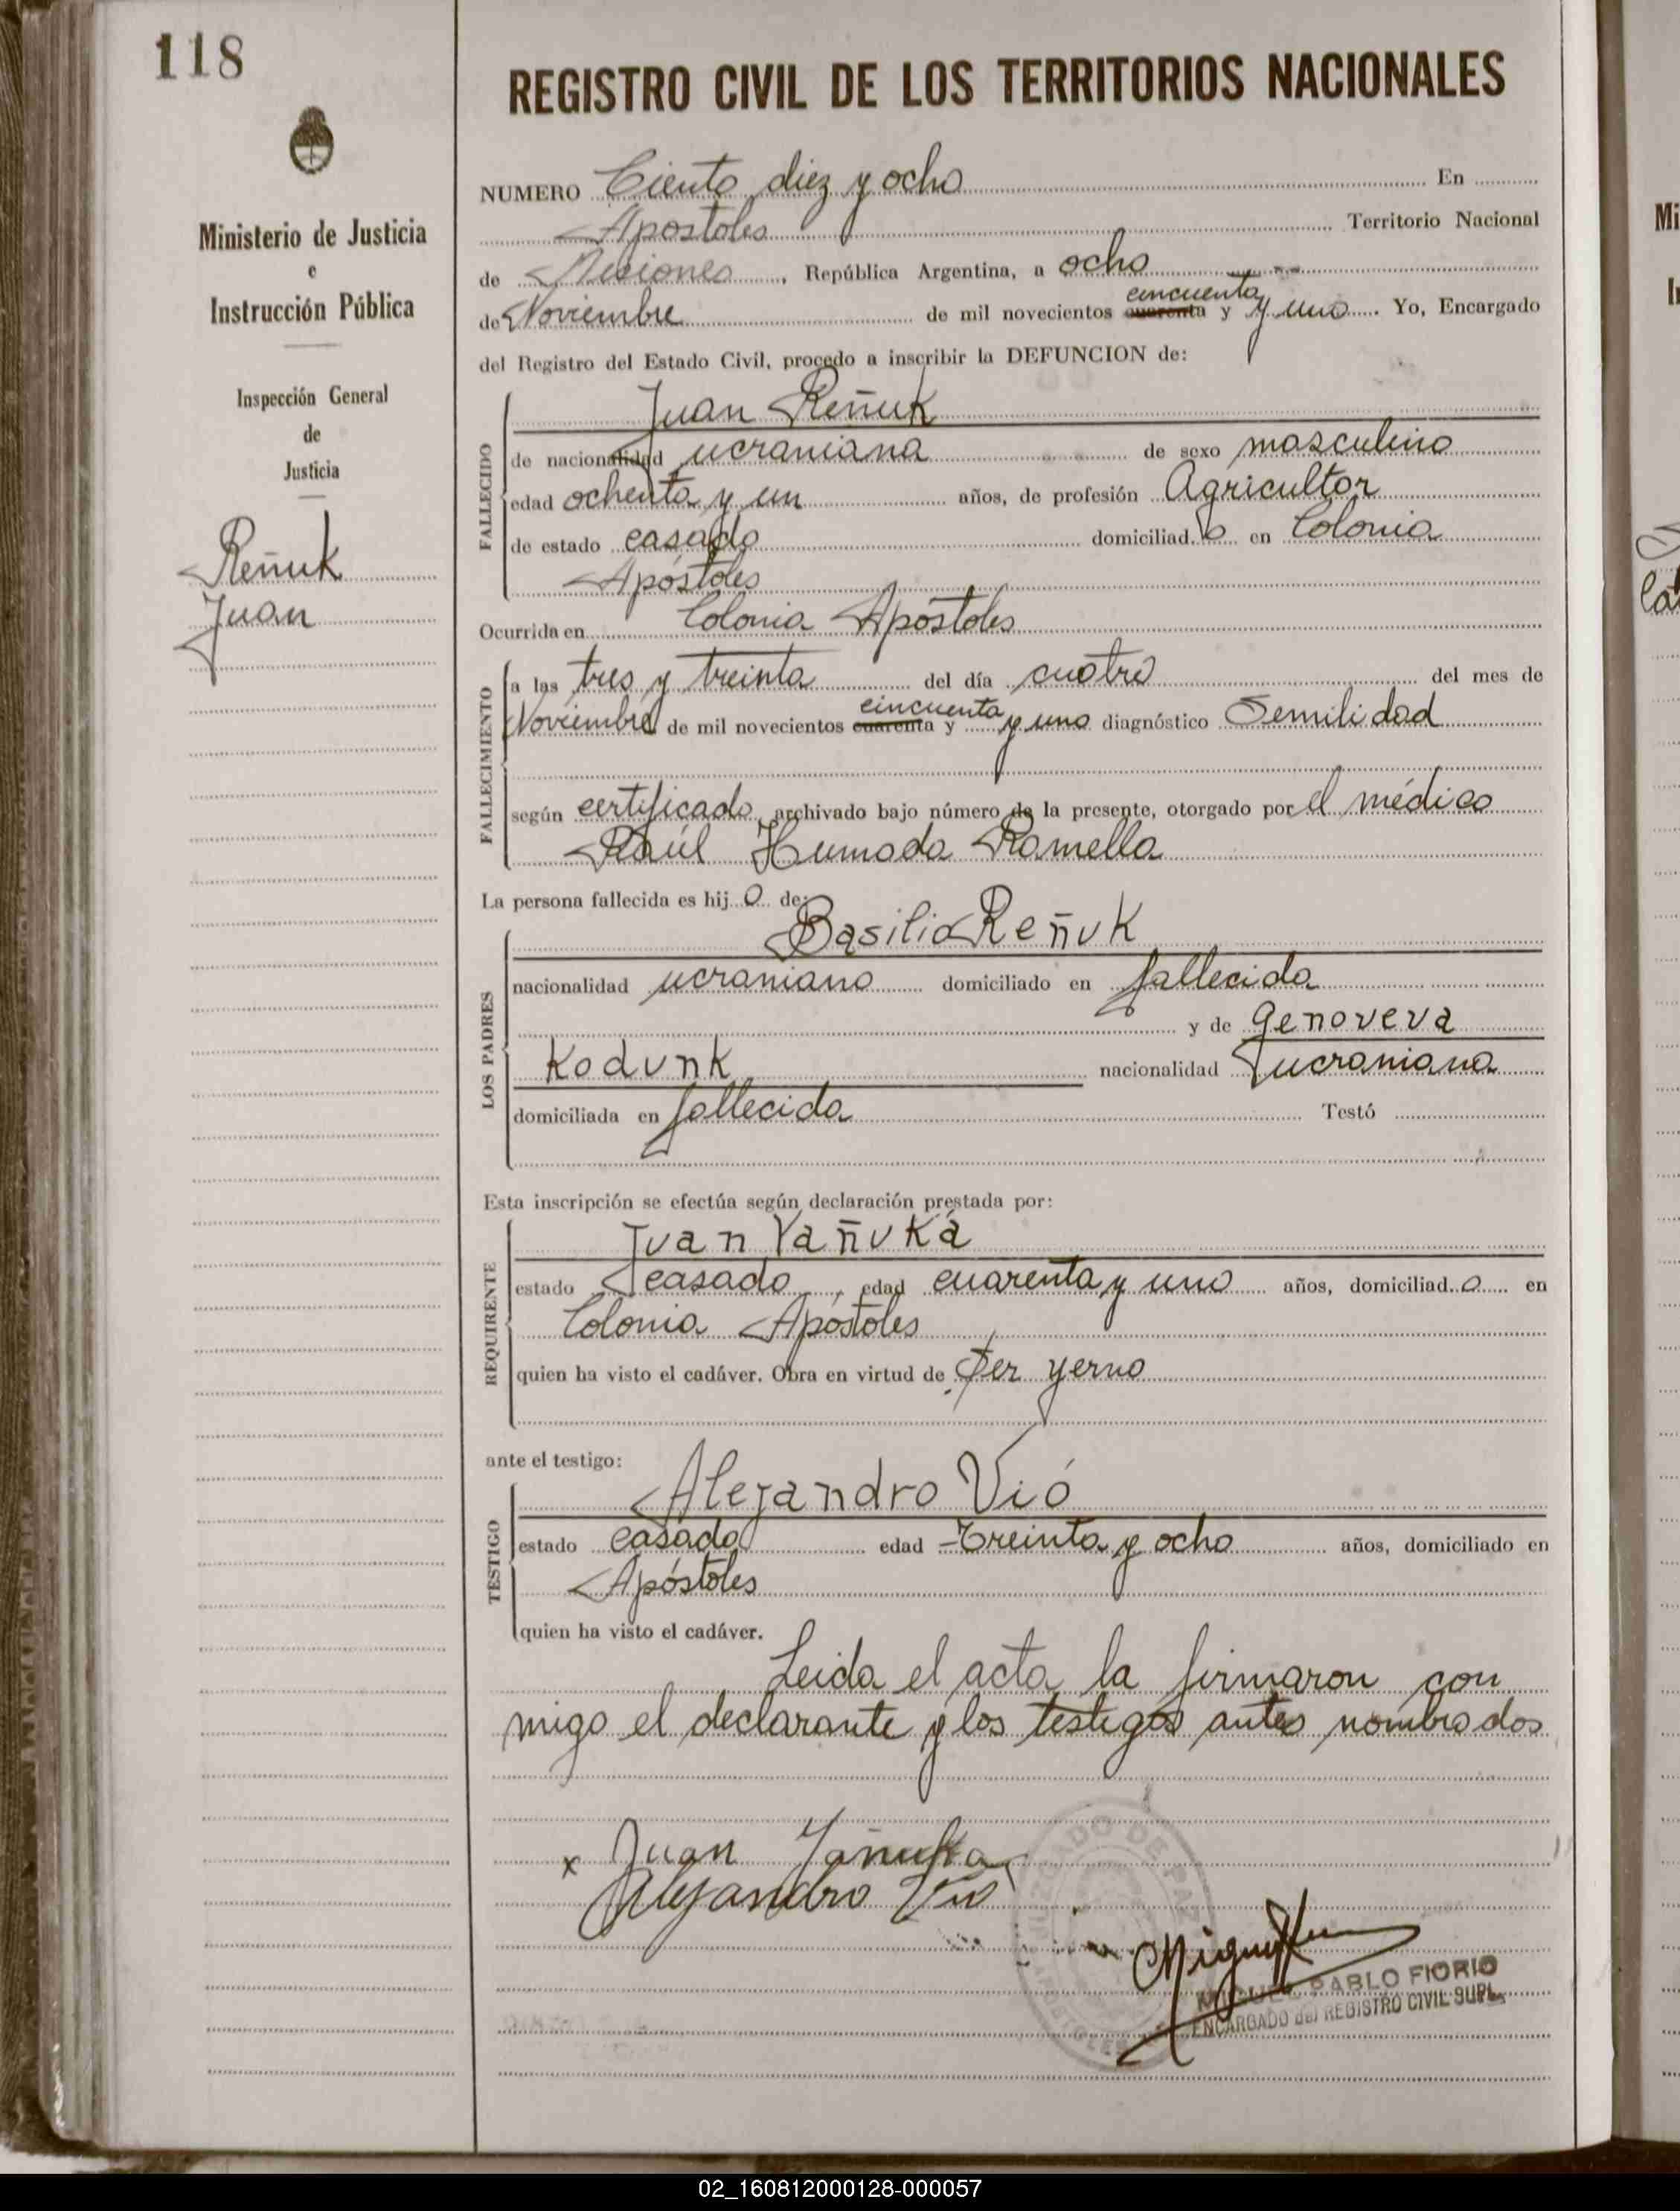 118
REGISTRO CIVIL DE LOS TERRITORIOS NACIONALES
Ministerio de Justicia
e
Instrucción Pública
Inspección General
de
Justicia
Reñuk
Juan
NUMERO Ciento diez y ocho En
Apostoles Territorio Nacional
de Misiones, República Argentina, a ocho
de Noviembre de mil novecientos cuarenta y cincuenta y uno. Yo, Encargado
del Registro del Estado Civil, procedo a inscribir la DEFUNCION de:
FALLECIDO
Juan Reñuk
de nacionalidad ucraniana de sexo masculino
edad ochenta y un años, de profesión Agricultor
de estado casado domiciliad o en Colonia
Apóstoles
Ocurrida en Colonia Apóstoles
FALLECIMIENTO
a las tres y treinta del día cuatro del mes de
Noviembre de mil novecientos cuarenta y cincuenta y uno diagnóstico Semilidad
según certificado archivado bajo número de la presente, otorgado por el médico
Raúl Humada Ramella
La persona fallecida es hij o de:
LOS PADRES
Basilio Reñuk
nacionalidad ucraniano domiciliado en fallecido
y de Genoveva
Kodunk nacionalidad ucraniana
domiciliada en fallecida Testó
Esta inscripción se efectúa según declaración prestada por:
REQUIRENTE
Juan Yañuka
estado casado, edad cuarenta y uno años, domiciliad o en
Colonia Apóstoles
quien ha visto el cadáver. Obra en virtud de Ser yerno
ante el testigo:
TESTIGO
Alejandro Vió
estado casado edad Treinta y ocho años, domiciliado en
Apóstoles
quien ha visto el cadáver.
Leida el acta la firmaron con
migo el declarante y los testigos antes nombrados
x Juan Yañuka
Alejandro Vió
JUZGADO DE PAZ
MIGUEL PABLO FIORIO
ENCARGADO del REGISTRO CIVIL SUPL.
02_160812000128-000057